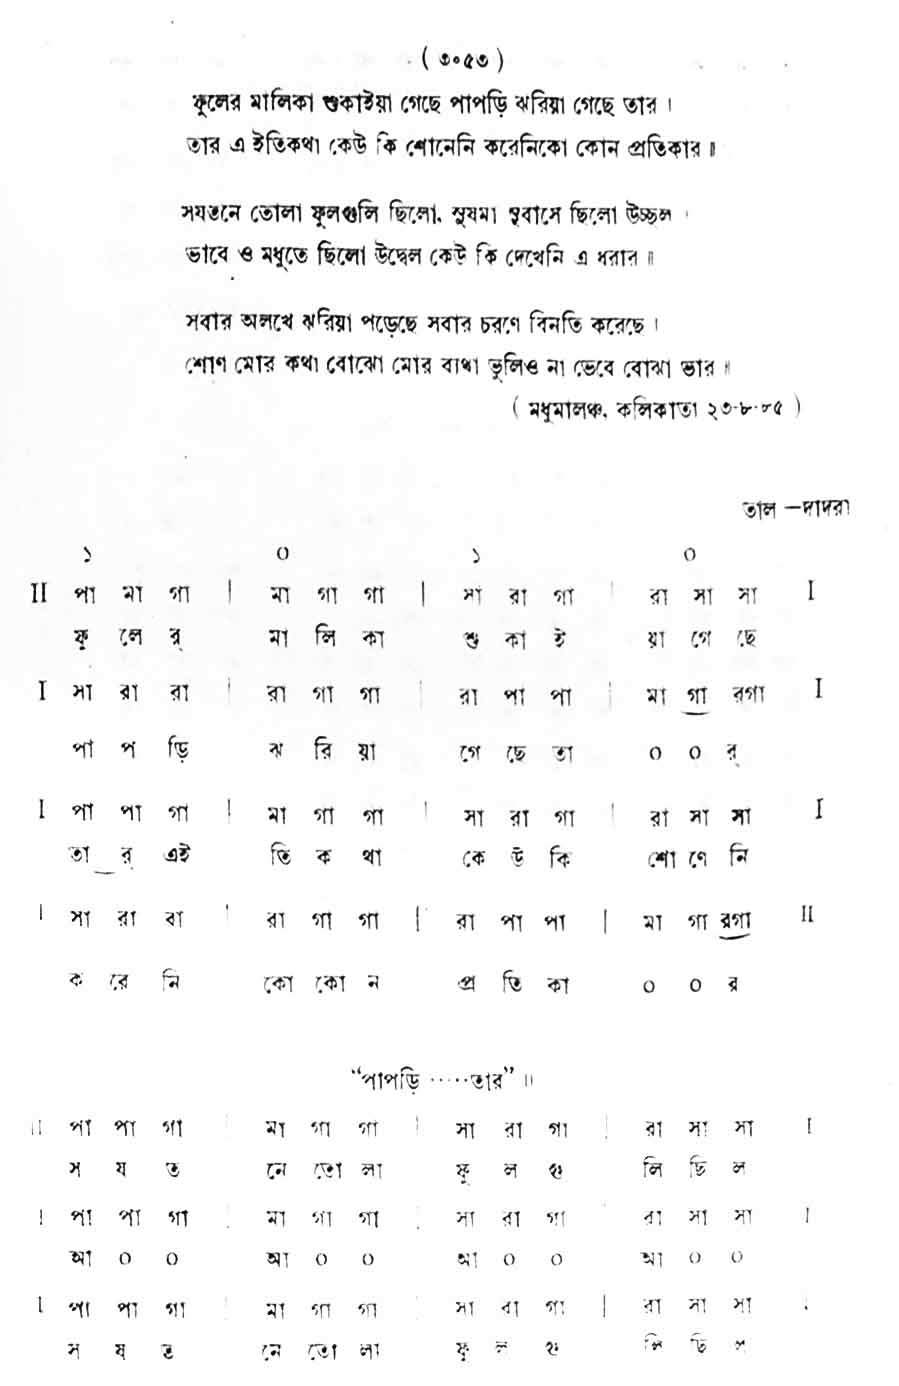 ( ৩০৫৩ )
ফুলের মালিকা শুকাইয়া গেছে পাপড়ি ঝরিয়া গেছে তার ।
তার এ ইতিকথা কেউ কি শোনেনি করেনিকো কোন প্রতিকার ॥
সযতনে তোলা ফুলগুলি ছিলো, সুষমা সুবাসে ছিলো উচ্ছল ।
ভাবে ও মধুতে ছিলো উদ্বেল কেউ কি দেখেনি এ ধরার ॥
সবার অলখে ঝরিয়া পড়েছে সবার চরণে বিনতি করেছে ।
শোণ মোর কথা বোঝো মোর ব্যথা ভুলিও না ভেবে বোঝা ভার ॥
( মধুমালঞ্চ, কলিকাতা ২৩-৮-৮৫ )
তাল —দাদরা
১ ০ ১ ০
II পা মা গা | মা গা গা | সা রা গা | রা সা সা I
ফু লে র্ মা লি কা শু কা ই য়া গে ছে
I সা রা রা | রা গা গা | রা পা পা | মা গা রগা I
পা প ড়ি ঝ রি য়া গে ছে তা ০ ০ র্
I পা পা গা | মা গা গা | সা রা গা | রা সা সা I
তা র্ এই তি ক থা কে উ কি শো ণে নি
I সা রা রা | রা গা গা | রা পা পা | মা গা রগা II
ক রে নি কো কো ন প্র তি কা ০ ০ র
“পাপড়ি ·····তার” ॥
II পা পা গা | মা গা গা | সা রা গা | রা সা সা I
স য ত নে তো লা ফু ল গু লি ছি ল
I পা পা গা | মা গা গা | সা রা গা | রা সা সা I
আ ০ ০ আ ০ ০ আ ০ ০ আ ০ ০
I পা পা গা | মা গা গা | সা রা গা | রা সা সা I
স য ত নে তো লা ফু ল গু লি ছি ল